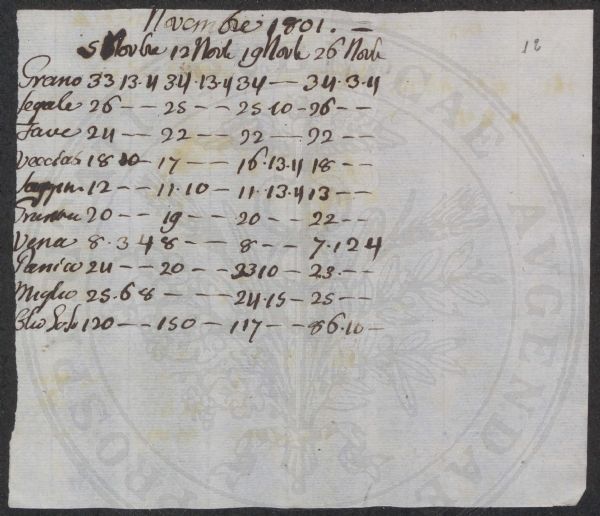 Novembre 1801. =
5 Novbre 12 Novb 19 Novb 26 Novb 12
Grano 33 13.4 34.13.4 34 -- 34.3.4
Segale 26 -- 25 -- 25.10 - 26 --
Fave 24 -- 22 -- 22 -- 22 --
18 10 - 17 -- 16.13.4 18 --
12 -- 11.10 - 11.13.4 13 --
20 -- 19 -- 20 -- 22 --
Vena 8.3 4 8 -- 8 -- 7.12 4
Panico 24 -- 20 -- 23 10 - 23 --
Miglio 25.6 8 --- 24.15 - 25 --
120 -- 150 -- 117 -- 86.10 -
AVGENDAE
PROSP